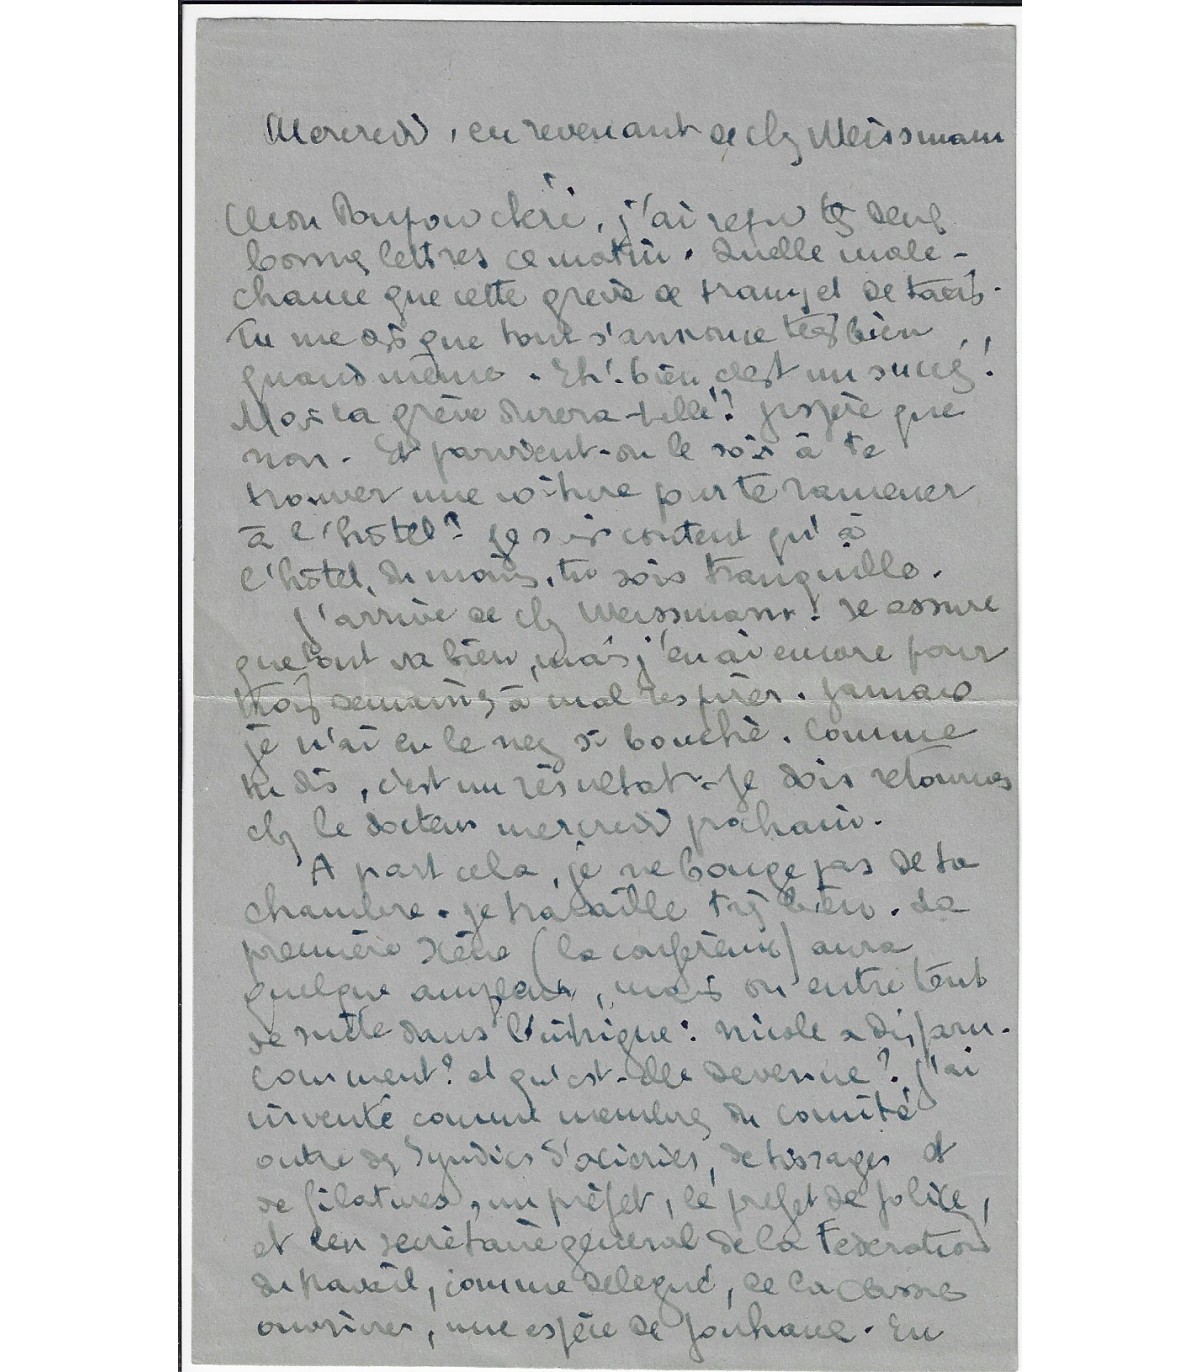 Mercredi, en revenant de chez Weissmann
Mon chéri, j'ai reçu tes deux
bonnes lettres ce matin. Quelle male-
chance que cette grève de trams et de taxis.
Tu me dis que tout s'annonce très bien
quand même. Eh! bien, c'est un succès!
Mais la grève durera-t-elle? J'espère que
non. Et parvient-on le soir à te
trouver une voiture pour te ramener
à l'hôtel? Je suis content qu'à
l'hôtel, du moins, tu sois tranquille.
J'arrive de chez Weissmann! Il assure
que tout va bien, mais j'en ai encore pour
trois semaines à mal respirer. Jamais
je n'ai eu le nez si bouché. Comme
tu dis, c'est un résultat. Je dois retourner
chez le docteur mercredi prochain.
A part cela, je ne bouge pas de ta
chambre. Je travaille très bien. La
première scène (la conférence) aura
quelque ampleur, mais on entre tout
de suite dans l'intrigue: Nicole a disparu.
Comment? et qu'est-elle devenue? J'ai
inventé comme membres du comité
outre des syndics d'aciéries, de tissages et
de filatures, un préfet, le préfet de police,
et le secrétaire général de la Fédération
du travail, comme délégué de la classe
ouvrière, une espèce de Jouhaux. En